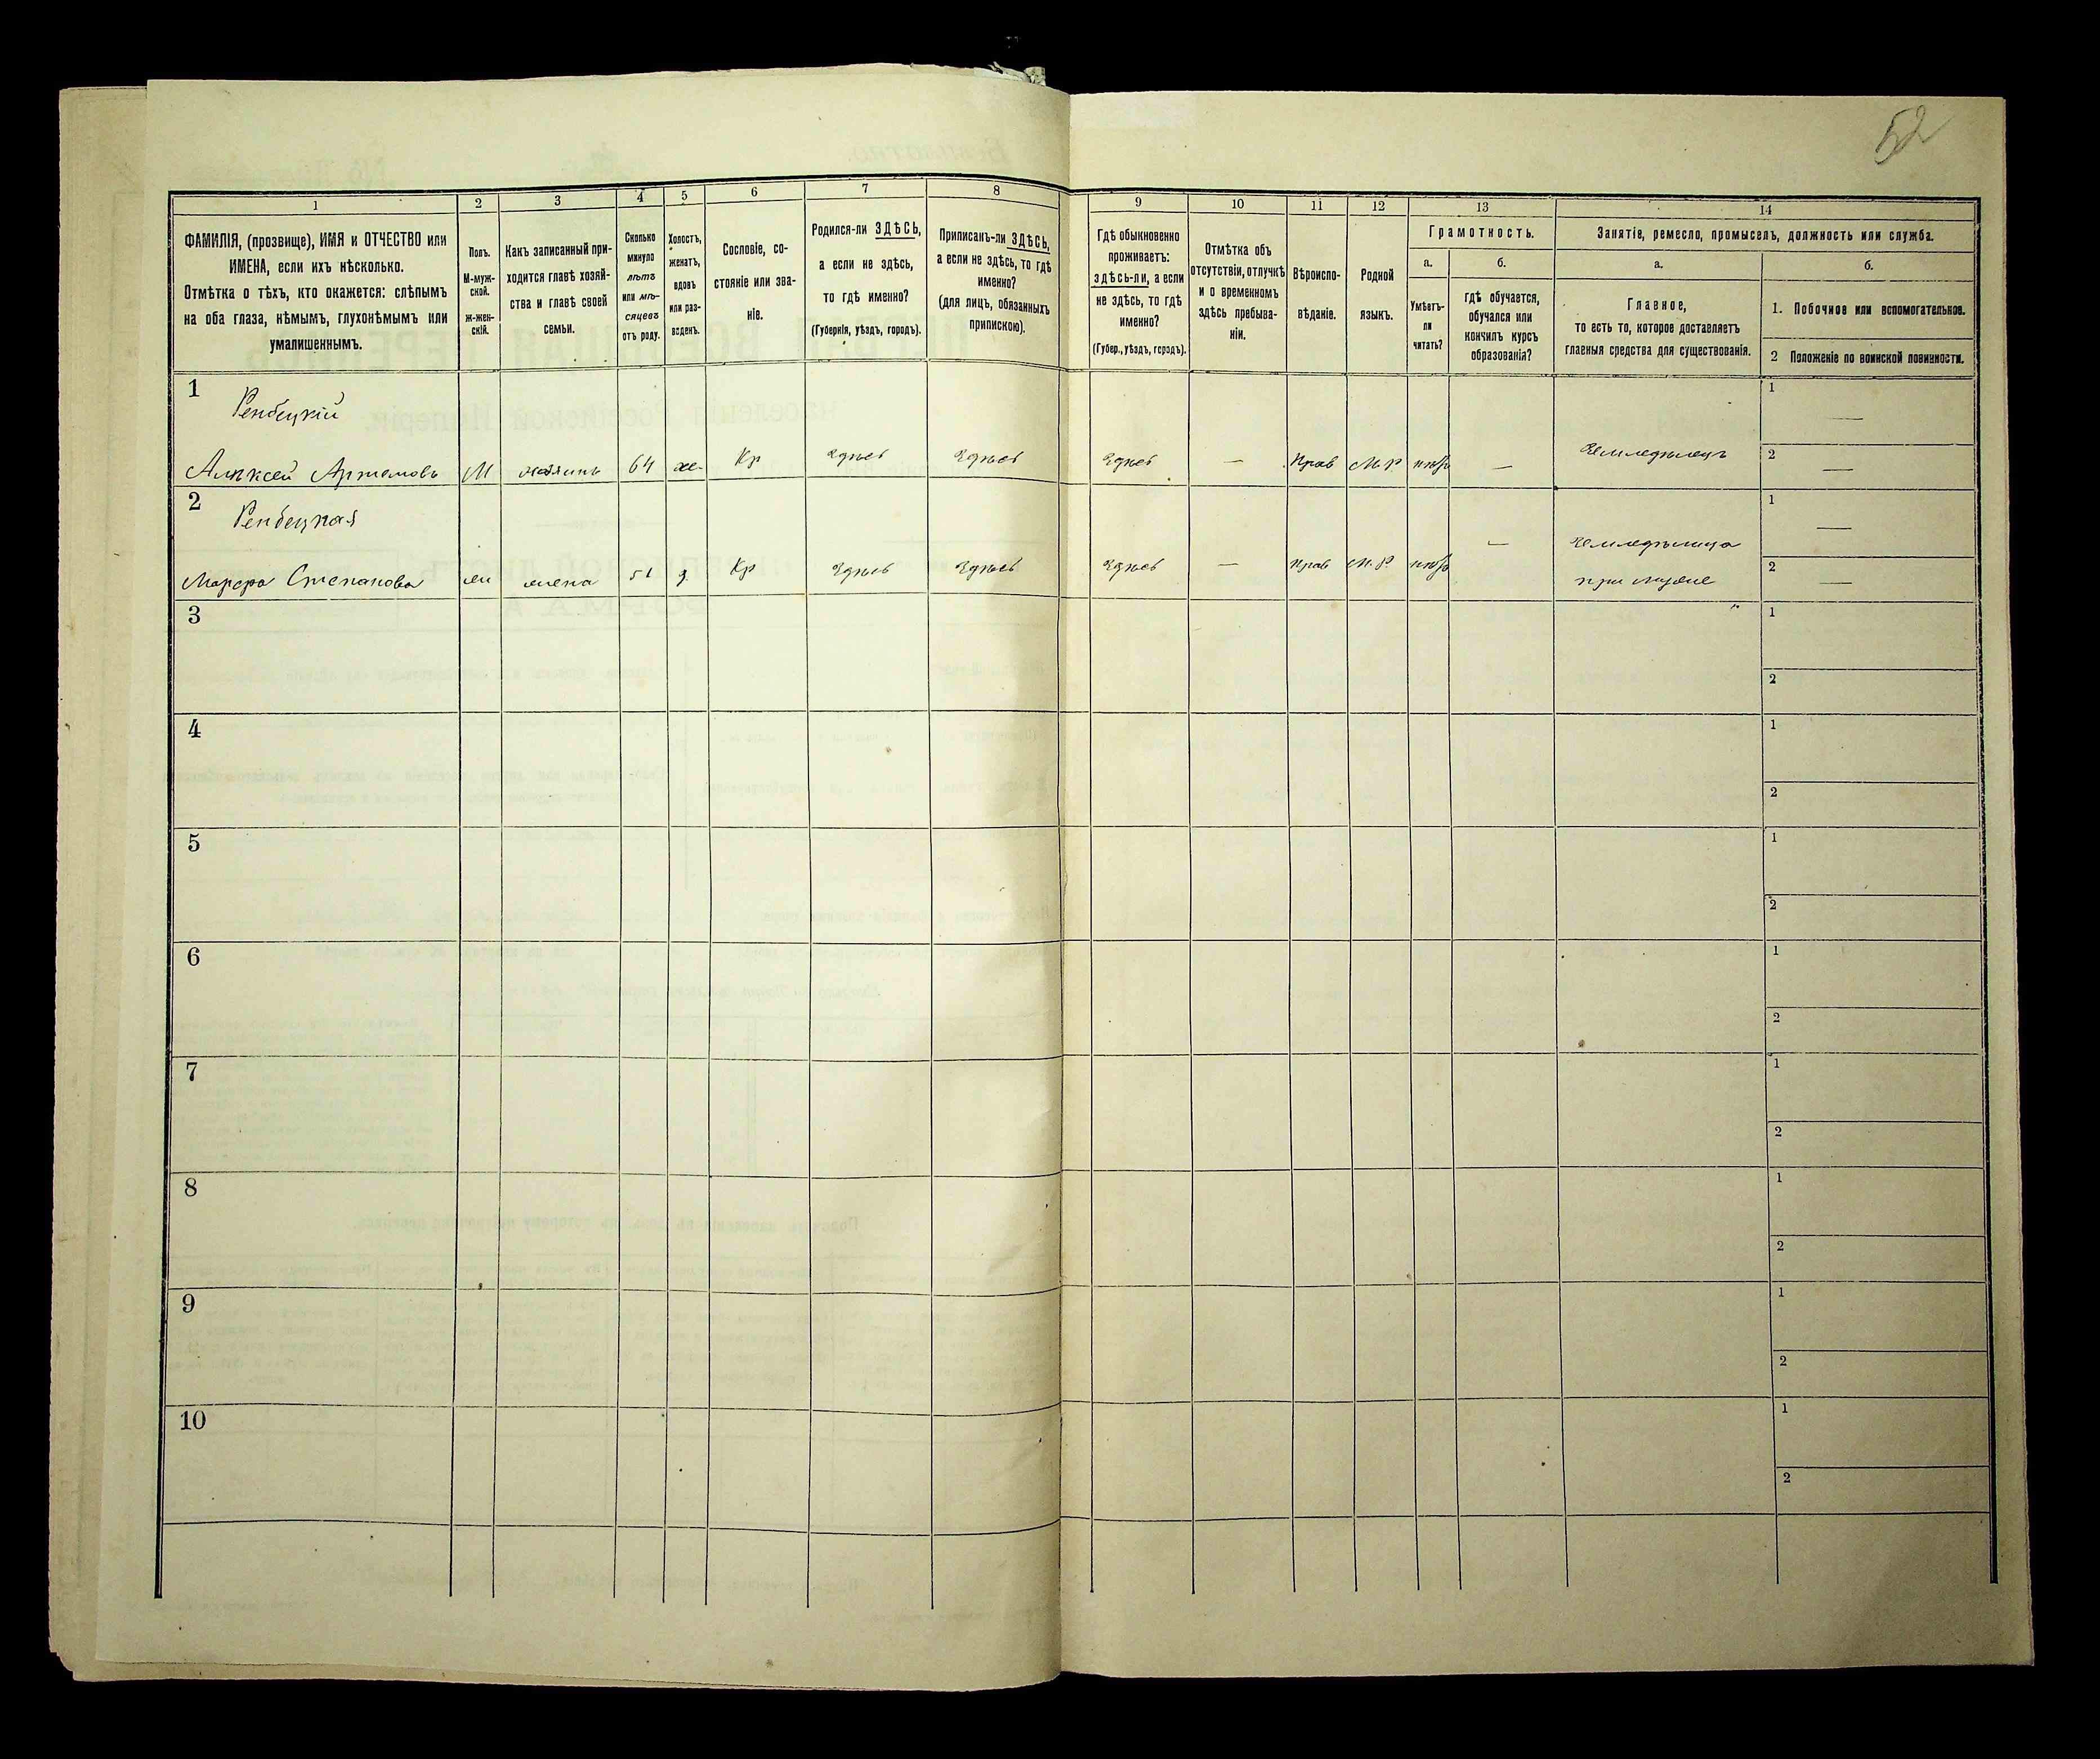 52
1
2
3
4
5
6
7
8
9
10
11
12
13
14
ФАМИЛІЯ, (прозвище), ИМЯ и ОТЧЕСТВО или
ИМЕНА, если ихъ нѣсколько.
Отмѣтка о тѣхъ, кто окажется: слѣпымъ
на оба глаза, нѣмымъ, глухонѣмымъ или
умалишеннымъ.
Полъ.
М-муж-
ской.
ж-жен-
скій.
Какъ записанный при-
ходится главѣ хозяй-
ства и главѣ своей
семьи.
Сколько
минуло
лѣтъ
или мѣ-
сяцевъ
отъ роду.
Холостъ,
женатъ,
вдовъ
или раз-
веденъ.
Сословіе, со-
стояніе или зва-
ніе.
Родился-ли ЗДѢСЬ,
а если не здѣсь,
то гдѣ именно?
(Губернія, уѣздъ, городъ).
Приписанъ-ли ЗДѢСЬ,
а если не здѣсь, то гдѣ
именно?
(для лицъ, обязанныхъ
припискою).
Гдѣ обыкновенно
проживаетъ:
здѣсь-ли, а если
не здѣсь, то гдѣ
именно?
(Губер., уѣздъ, городъ).
Отмѣтка объ
отсутствіи, отлучкѣ
и о временномъ
здѣсь пребыва-
ніи.
Вѣроиспо-
вѣданіе.
Родной
языкъ.
Грамотность.
а.
Умѣетъ-
ли
читать?
б.
гдѣ обучается,
обучался или
кончилъ курсъ
образованія?
Занятіе, ремесло, промыселъ, должность или служба.
а.
Главное,
то есть то, которое доставляетъ
главныя средства для существованія.
б.
1. Побочное или вспомогательное.
2 Положеніе по воинской повинности.
1
Ренбецкій
Алексей Артемовъ М хозяинъ 64 же- Кр здѣсь здѣсь здѣсь — Прав М.Р нѣтъ — Земледѣлецъ
1 —
2 —
2
Ренбецкая
Марфа Степанова ж жена 51 з. Кр здѣсь здѣсь здѣсь — Прав М.Р. нѣтъ — Земледѣлица
при мужѣ
1 —
2 —
3
1
2
4
1
2
5
1
2
6
1
2
7
1
2
8
1
2
9
1
2
10
1
2